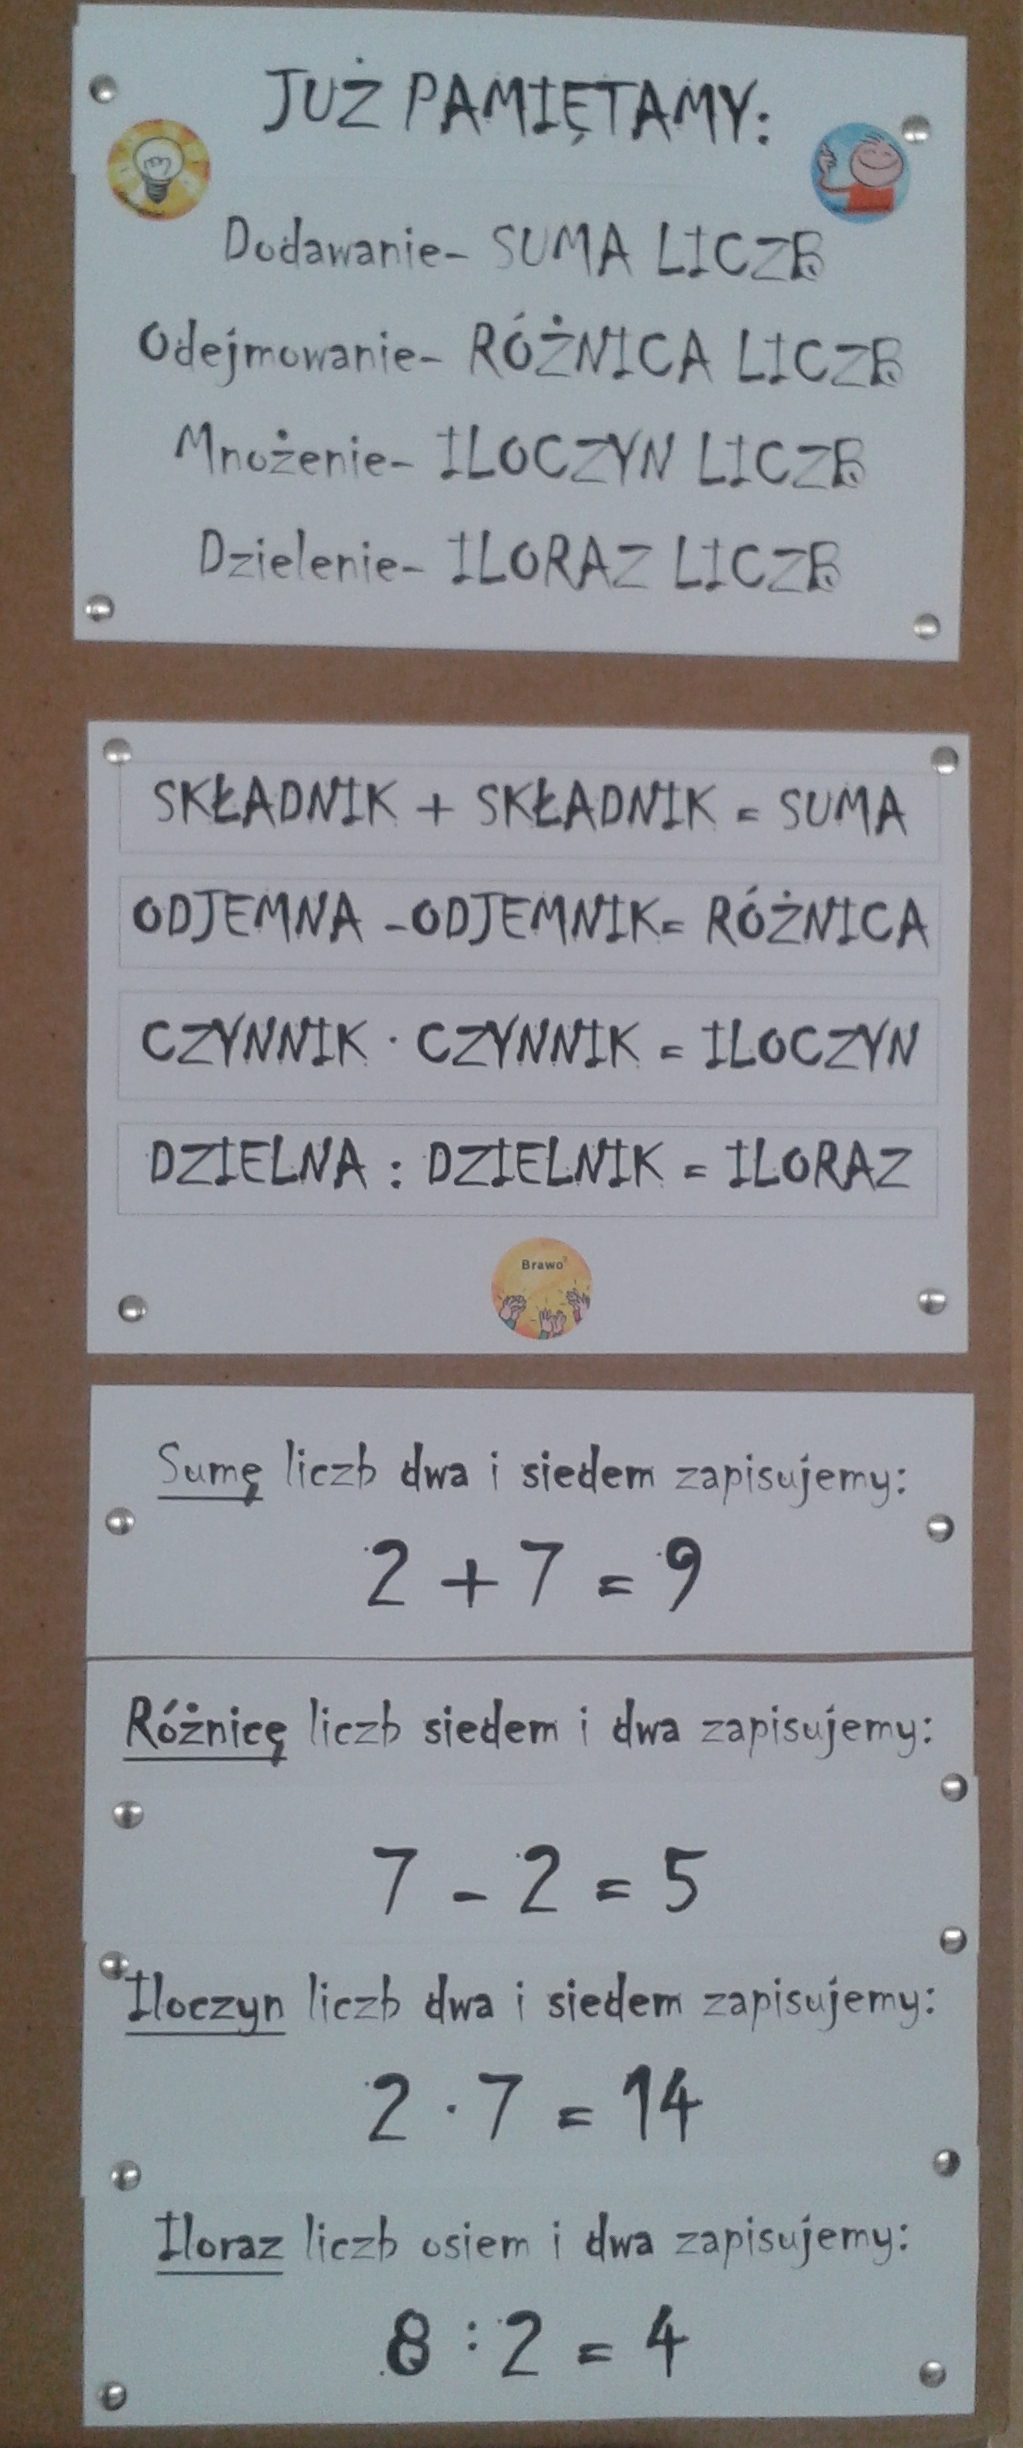 JUŻ PAMIĘTAMY:
Dodawanie- SUMA LICZB
Odejmowanie- RÓŻNICA LICZB
Mnożenie- ILOCZYN LICZB
Dzielenie- ILORAZ LICZB
SKŁADNIK + SKŁADNIK = SUMA
ODJEMNA -ODJEMNIK= RÓŻNICA
CZYNNIK · CZYNNIK = ILOCZYN
DZIELNA : DZIELNIK = ILORAZ
Brawo
Sumę liczb dwa i siedem zapisujemy:
2 + 7 = 9
Różnicę liczb siedem i dwa zapisujemy:
7 - 2 = 5
Iloczyn liczb dwa i siedem zapisujemy:
2 · 7 = 14
Iloraz liczb osiem i dwa zapisujemy:
8 : 2 = 4